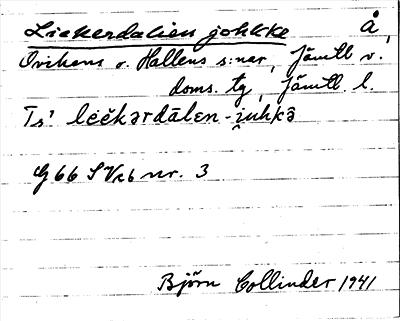 Liekerdalien johkke Å,
Ovikens o. Hallens s:nar, Jämtl. v.
doms. tg, Jämtl. l.
Ts' lèèkərdālen-i̯uhkə̄
G 66 S Vrb nr. 3
Björn Collinder 1941